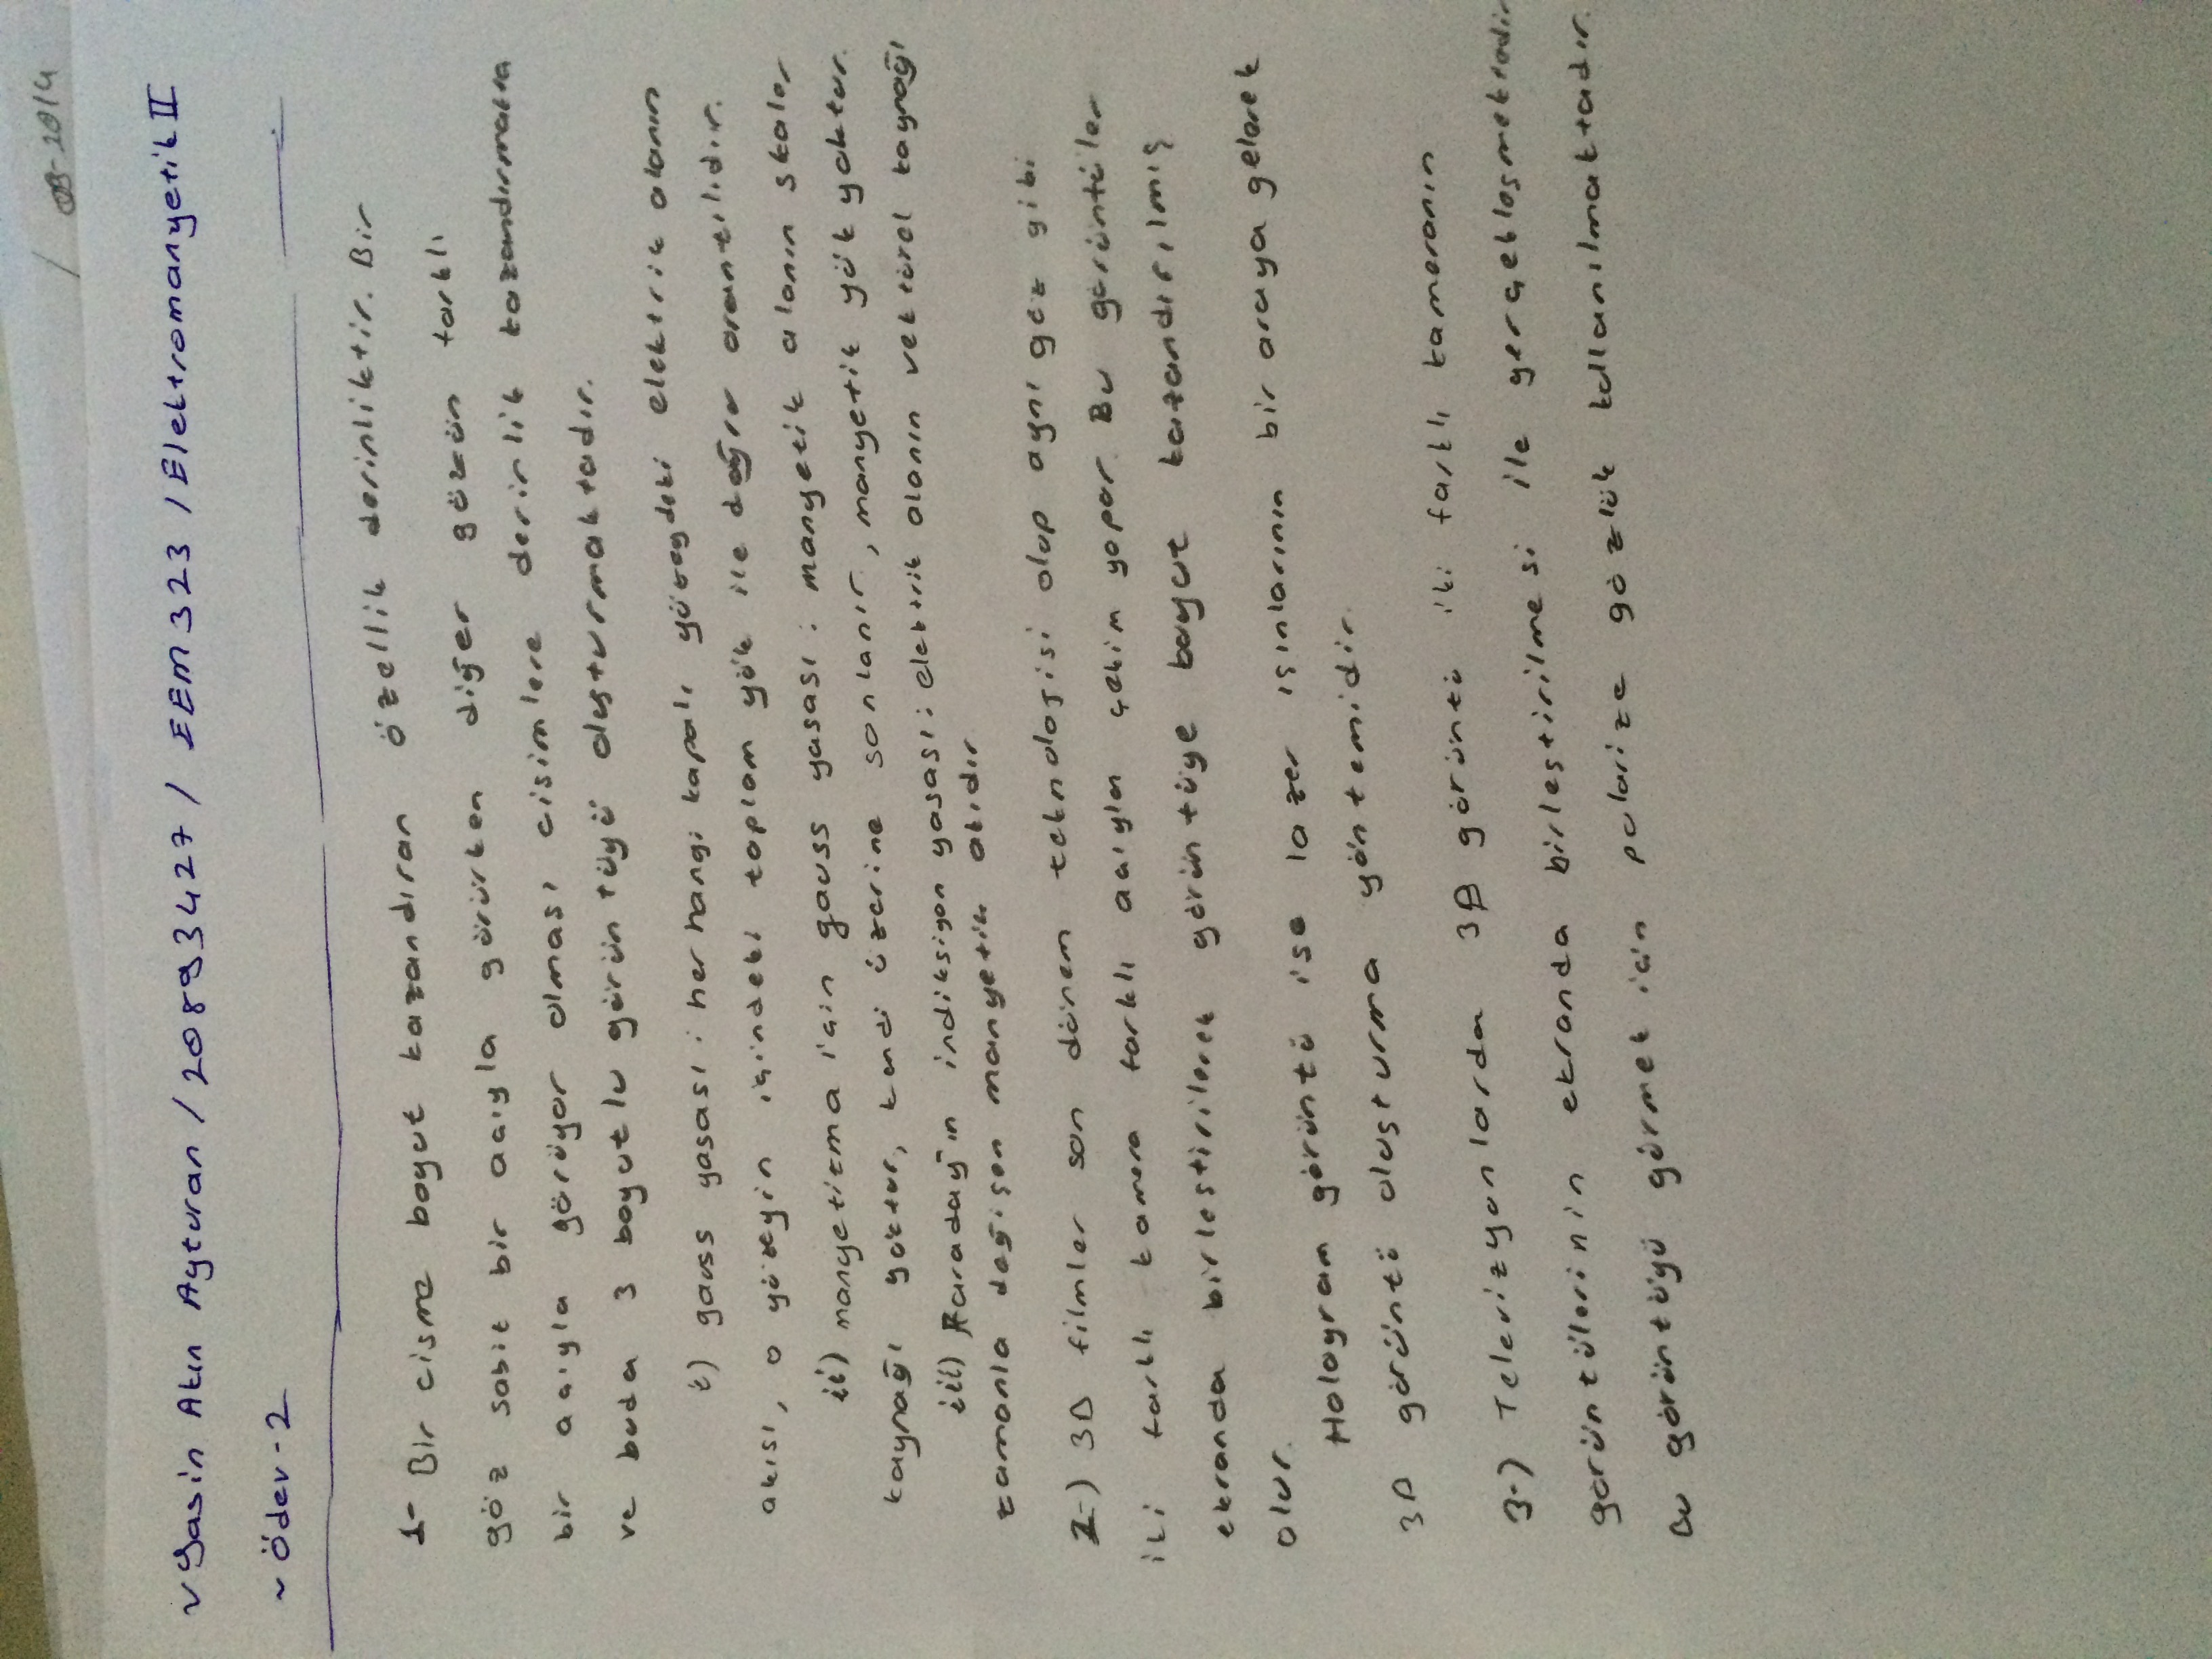 / 09-2014
~ Yasin Akın Ayturan / 20893427 / EEM 323 / Elektromanyetik II
~ Ödev - 2
1- Bir cisme boyut kazandıran özellik derinliktir. Bir
göz sabit bir açıyla görürken diğer gözün farklı
bir açıyla görüyor olması cisimlere derinlik kazandırmakta
ve buda 3 boyutlu görüntüyü oluşturmaktadır.
i) gauss yasası : her hangi kapalı yüzeydeki elektrik alanın
akısı, o yüzeyin içindeki toplam yük ile doğru orantılıdır.
ii) manyetizma için gauss yasası : manyetik alanın skaler
kaynağı yoktur, kendi üzerine sonlanır, manyetik yük yoktur.
iii) Faraday'ın indiksiyon yasası : elektrik alanın vektörel kaynağı
zamanla değişen manyetik akıdır
2-) 3D filmler son dönem teknolojisi olup aynı göz gibi
iki farklı kamera farklı açıyla çekim yapar. Bu görüntüler
ekranda birleştirilerek görüntüye boyut kazandırılmış
olur.
Hologram görüntü ise lazer ışınlarının bir araya gelerek
3D görüntü oluşturma yöntemidir.
3-) Televizyonlarda 3B görüntü iki farklı kameranın
görüntülerinin ekranda birleştirilmesi ile gerçekleşmektedir
Bu görüntüyü görmek için polarize gözlük kullanılmaktadır.